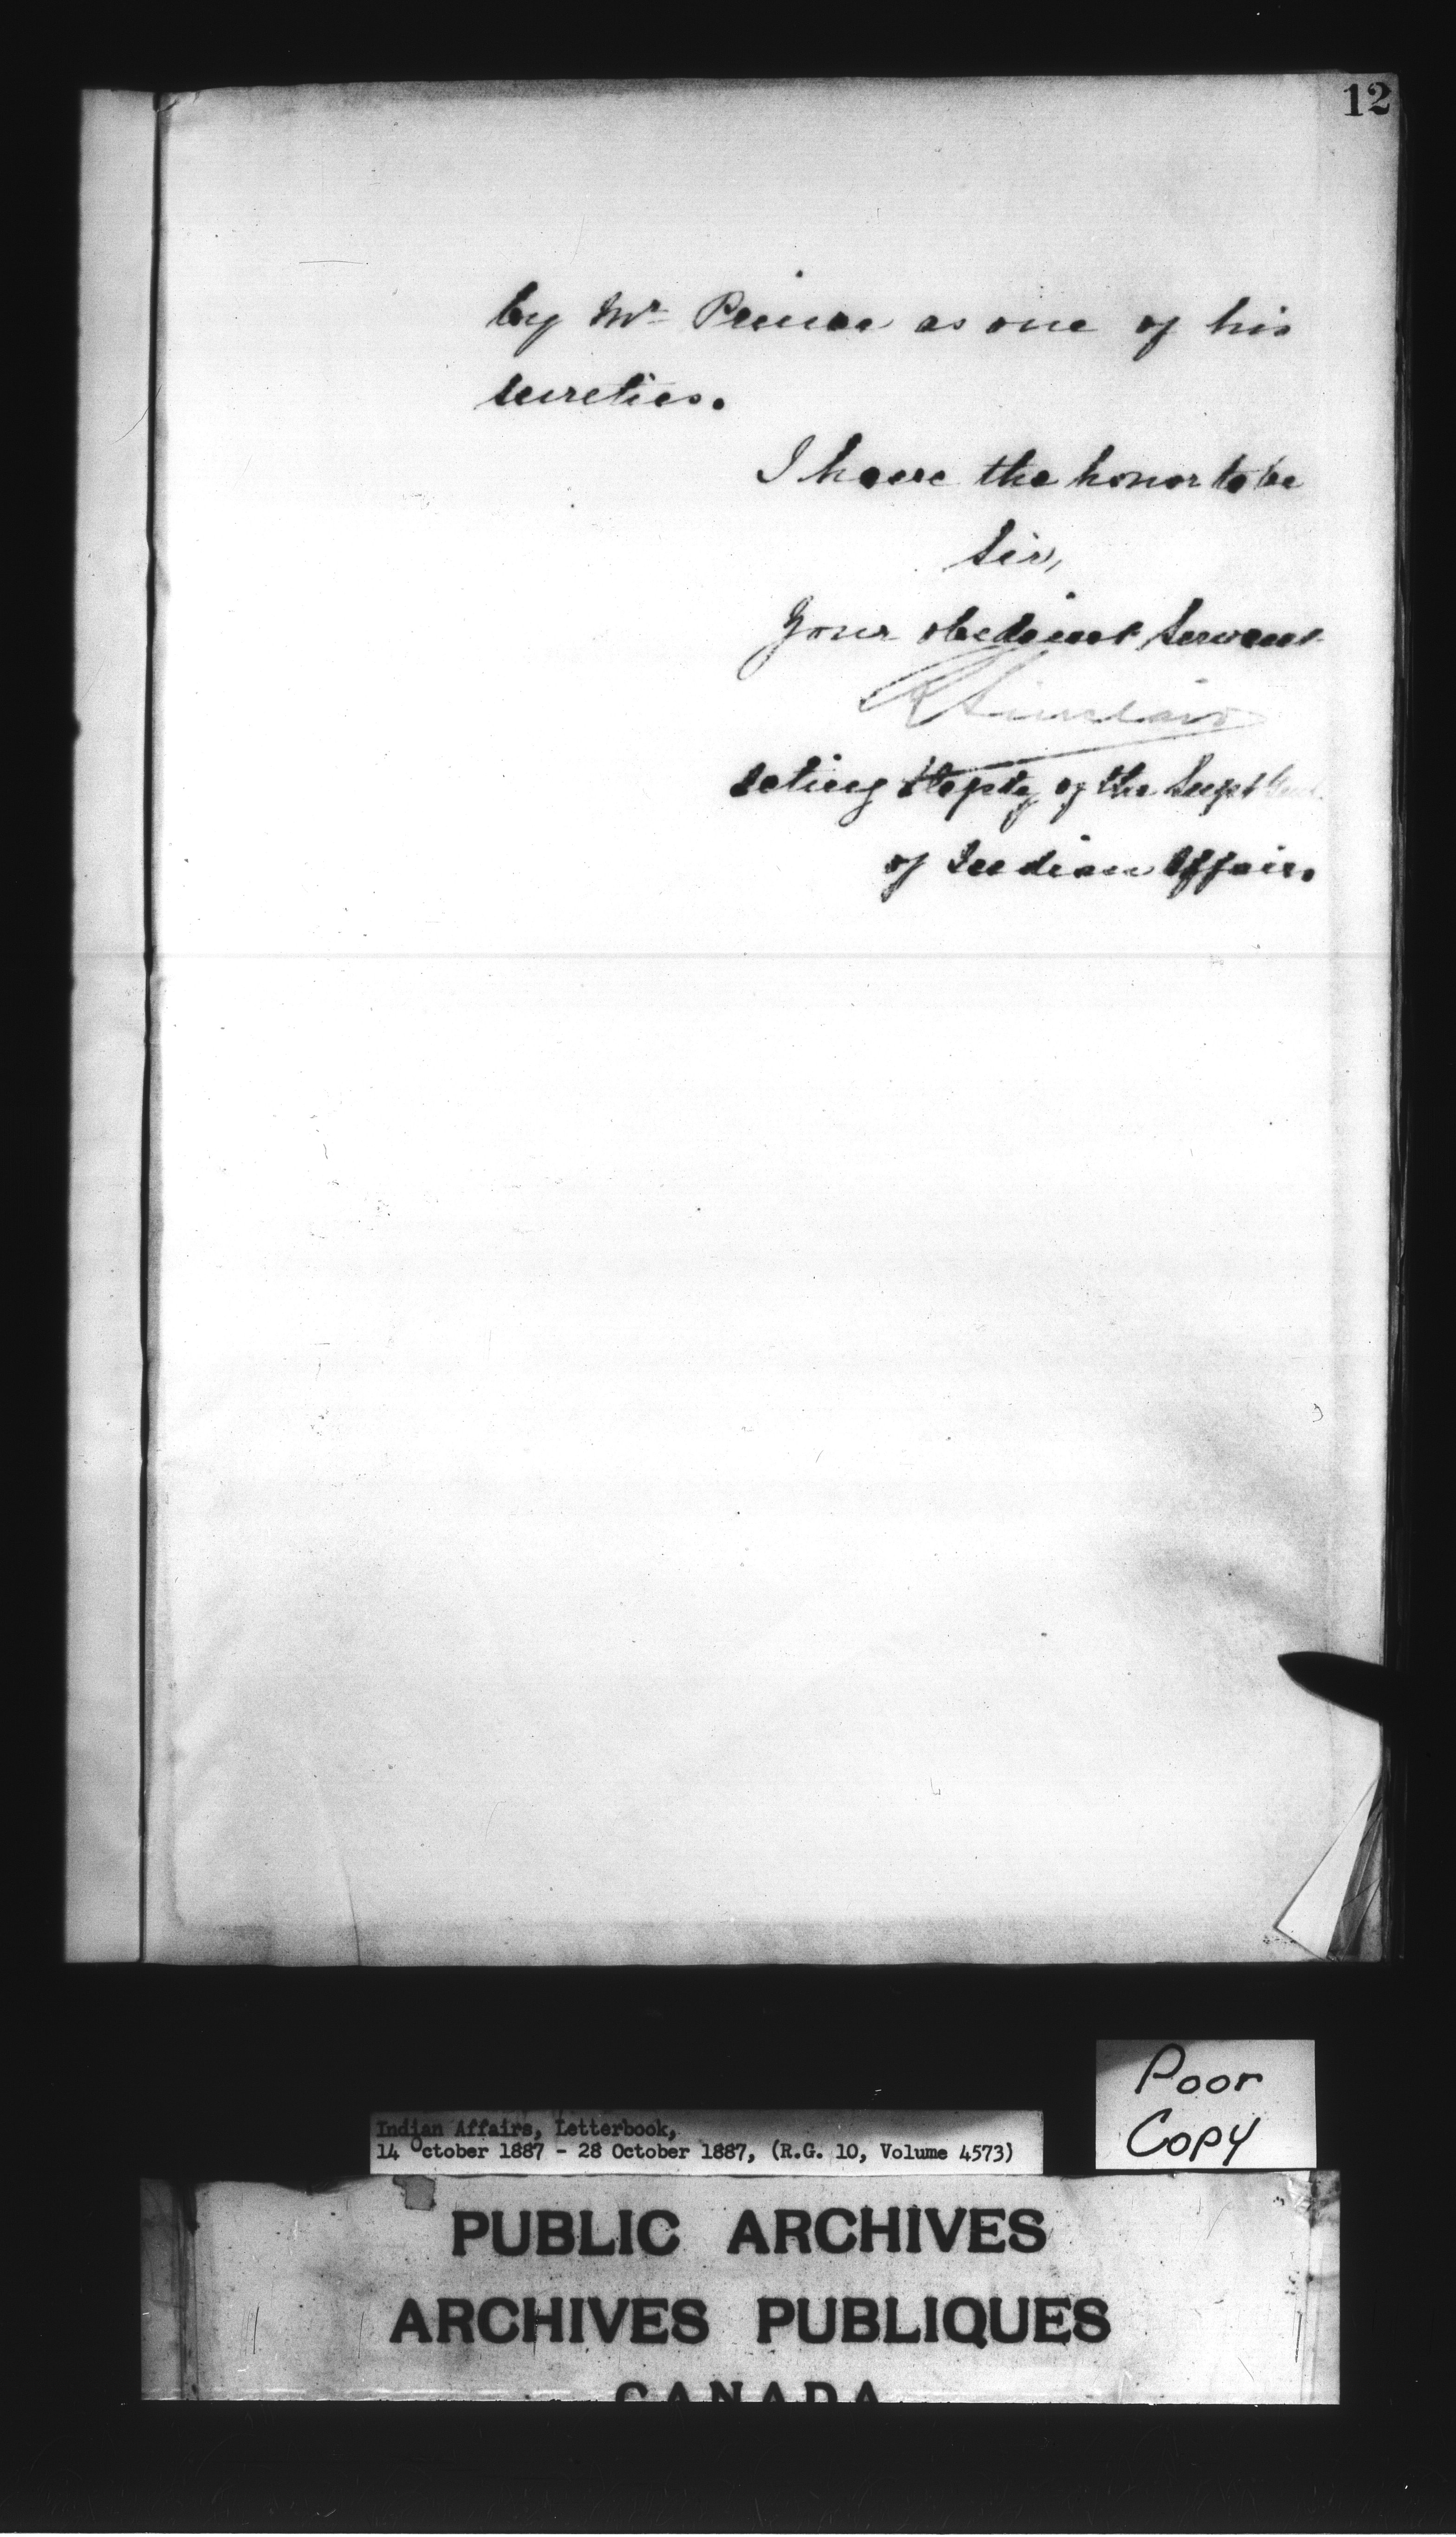 12
by Mr Prince as one of his
sureties.
I have the honor to be
Sir,
Your obedient Servant
R Sinclair
Acting Depty of the Supt Genl.
of Indian Affairs
Poor
Copy
Indian Affairs, Letterbook,
14 October 1887 - 28 October 1887, (R.G. 10, Volume 4573)
PUBLIC ARCHIVES
ARCHIVES PUBLIQUES
CANADA